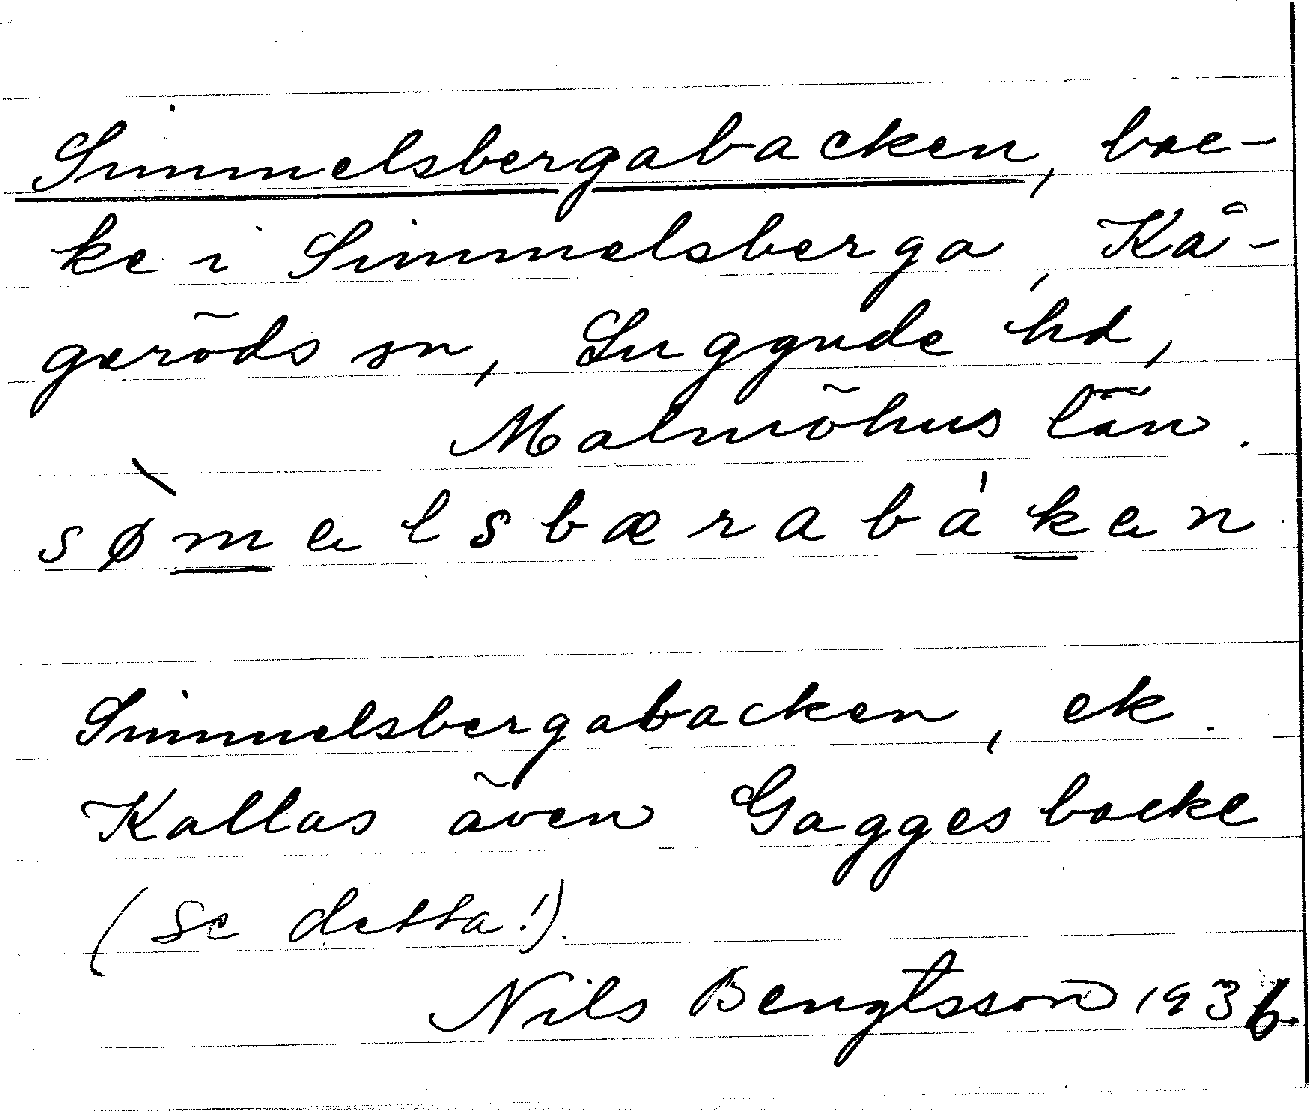 Simmelsbergabacken, bac-
ke i Simmelsberga, Kå-
geröds sn, Luggude hd,
Malmöhus län.
sø̀melsbæraba̍ken
Simmelsbergabacken, ek.
Kallas även Gaggesbacke
(Se detta!).
Nils Bengtsson 1936.